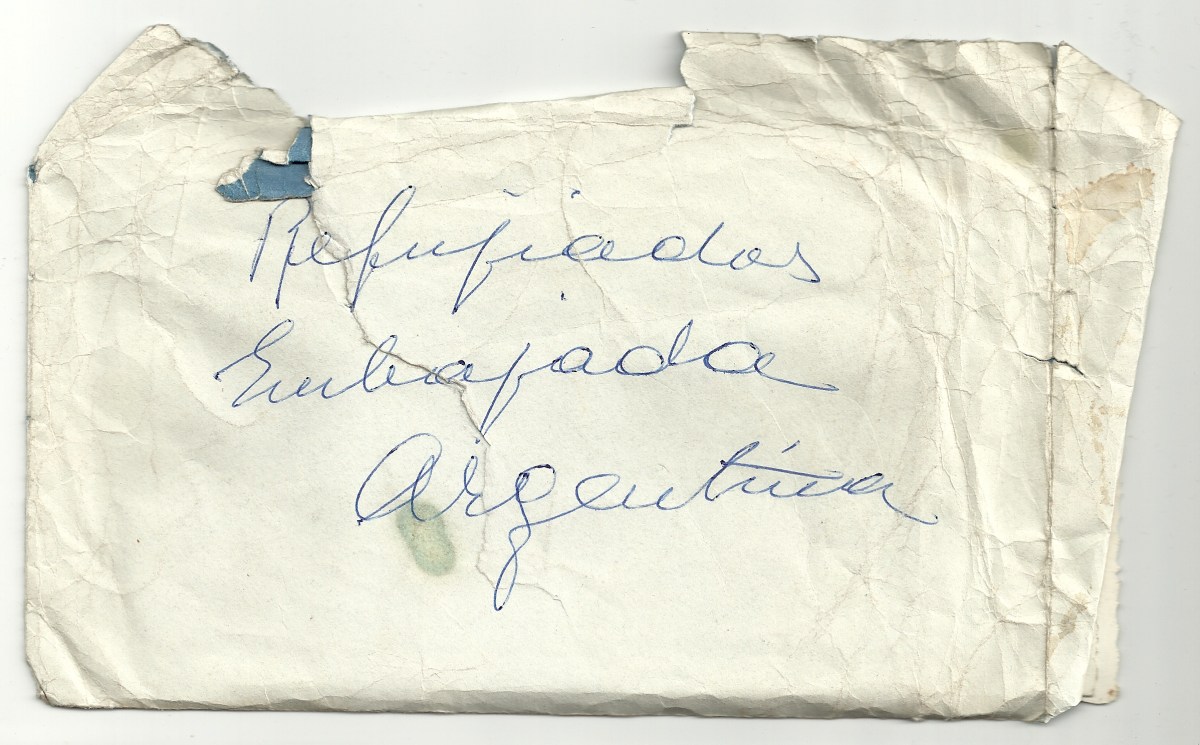 Refujiados
Embajada
Argentina